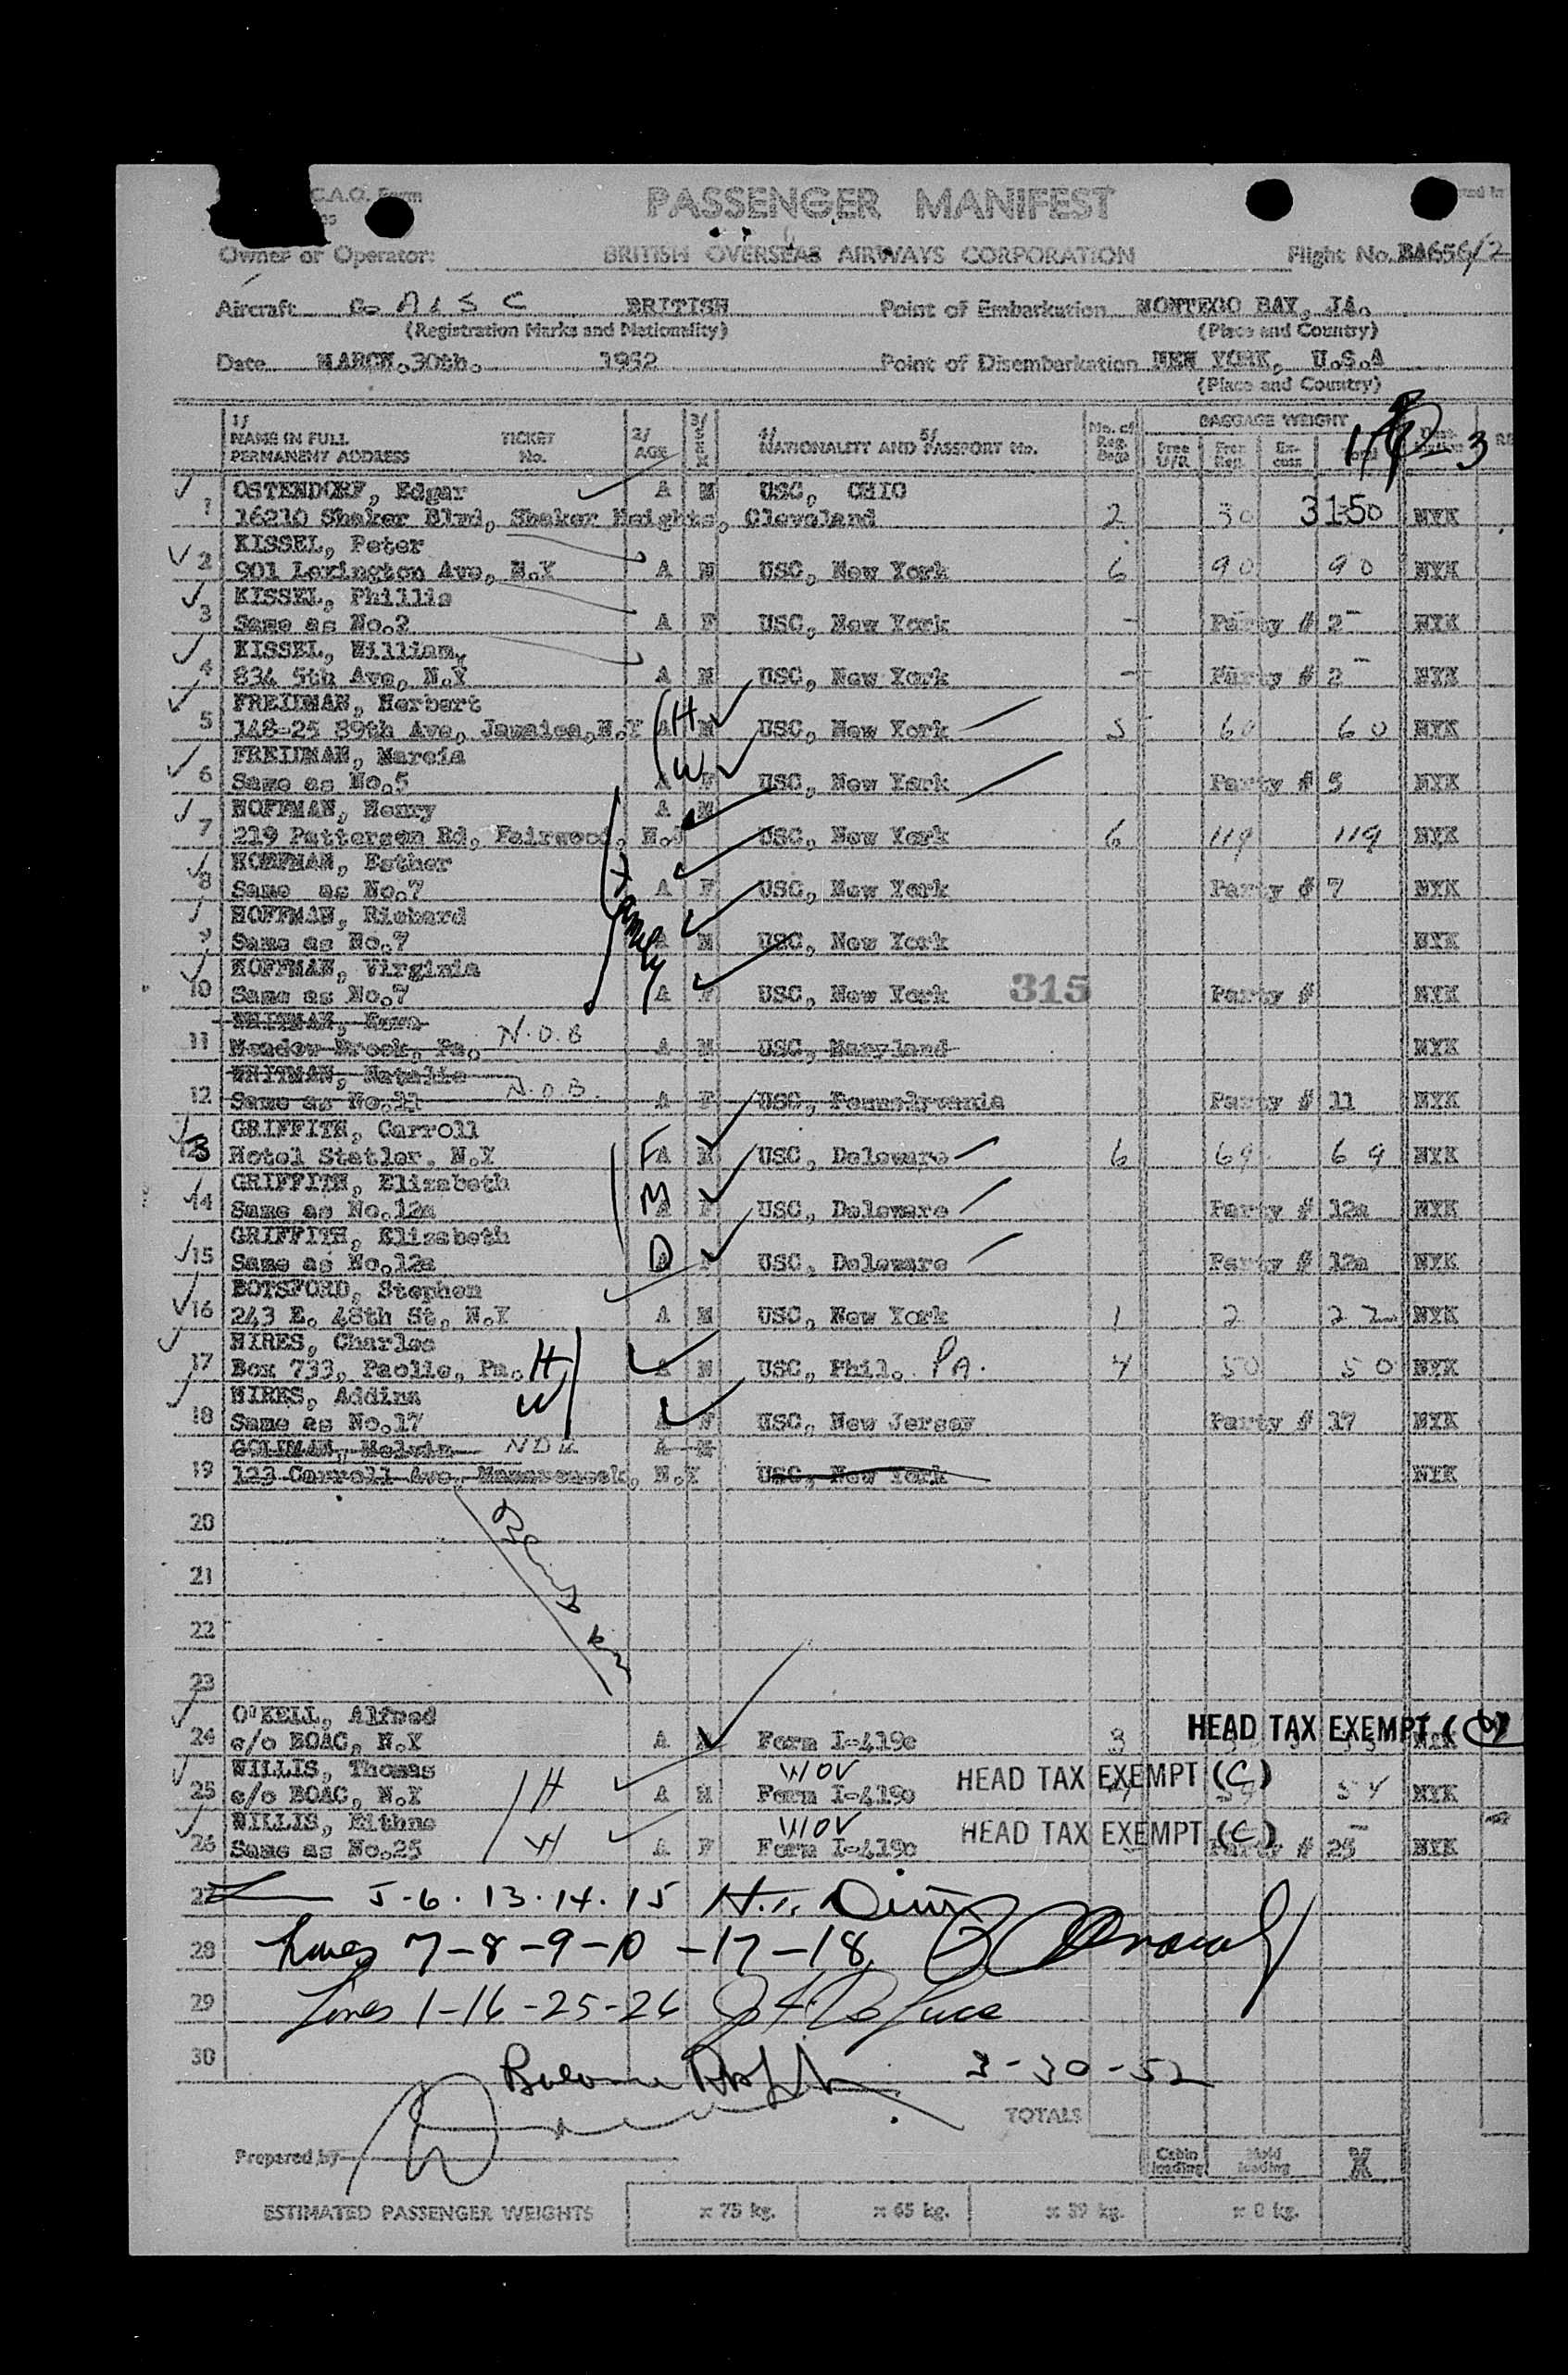 C.A.O. Form
PASSENGER MANIFEST
Owner or Operator: BRITISH OVERSEAS AIRWAYS CORPORATION Flight No. BA656/2
Aircraft G-ALSC BRITISH Point of Embarkation MONTEGO BAY, JA.
(Registration Marks and Nationality) (Place and Country)
Date MARCH.30th. 1952 Point of Disembarkation NEW YORK, U.S.A
(Place and Country)
1/ NAME IN FULL PERMANENT ADDRESS TICKET No. 2/ AGE 3/ SEX 4/ NATIONALITY AND 5/ PASSPORT No. No. of Reg. Bags BAGGAGE WEIGHT Free U/R Free Reg. Ex-cess Total
OSTENDORF, Edgar A M USC, OHIO
1 16210 Shaker Blvd, Shaker Heights, Cleveland 2 30 3150 NYK
KISSEL, Peter
2 901 Lexington Ave, N.Y A M USC, New York 6 90 90 NYK
KISSEL, Phillis
3 Same as No.2 A F USC, New York - Party # 2 NYK
KISSEL, William,
4 834 5th Ave, N.Y A M USC, New York - Party # 2 NYK
FREIDMAN, Herbert
5 148-25 89th Ave, Jamaica,N.Y A H M USC, New York 5 60 60 NYK
FREIDMAN, Marcia
6 Same as No.5 A W F USC, New York Party # 5 NYK
HOFFMAN, Henry A M
7 219 Patterson Rd, Fairwood, N.J USC, New York 6 119 119 NYK
HOFFMAN, Esther
8 Same as No.7 A F USC, New York Party # 7 NYK
HOFFMAN, Richard
9 Same as No.7 A M USC, New York NYK
Family
HOFFMAN, Virginia
10 Same as No.7 A F USC, New York 315 Party # NYK
WHITMAN, Ezra
11 Meadow Brook, Pa. N.O.B A M USC, Maryland NYK
WHITMAN, Natalie
12 Same as No.11 N.O.B. A F USC, Pennsylvania Party # 11 NYK
GRIFFITH, Carroll
13 Hotel Statler. N.Y F A M USC, Delaware 6 69 69 NYK
GRIFFITH, Elizabeth
14 Same as No.12a M A F USC, Delaware Party # 12a NYK
GRIFFITH, Elizabeth
15 Same as No.12a D A F USC, Delaware Party # 12a NYK
BOTSFORD, Stephen
16 243 E. 48th St, N.Y A M USC, New York 1 2 22 NYK
HIRES, Charles
17 Box 733, Paolle, Pa. H A M USC, Phil. PA. 4 50 50 NYK
HIRES, Addina
18 Same as No.17 W A F USC, New Jersey Party # 17 NYK
GOLDMAN, Melvin A M
19 123 Carroll Ave, Mamaroneck, N.Y USC, New York NYK
20
21
22
23
O'KELL, Alfred
24 c/o BOAC, N.Y A M Form I-419c 3 HEAD TAX EXEMPT ( NYK
WILLIS, Thomas WOV
25 c/o BOAC, N.Y H A M Form I-419c HEAD TAX EXEMPT (C) 54 NYK
WILLIS, Eithne WOV
26 Same as No.25 W A F Form I-419c HEAD TAX EXEMPT (C) Party # 25 NYK
27 5-6.13.14.15
28 Lines 7-8-9-10-17-18
29 Lines 1-16-25-26
30 3-30-52
TOTALS
Prepared by
Cabin loading Hold loading
ESTIMATED PASSENGER WEIGHTS x 75 kg. x 65 kg. x 39 kg. x 0 kg.